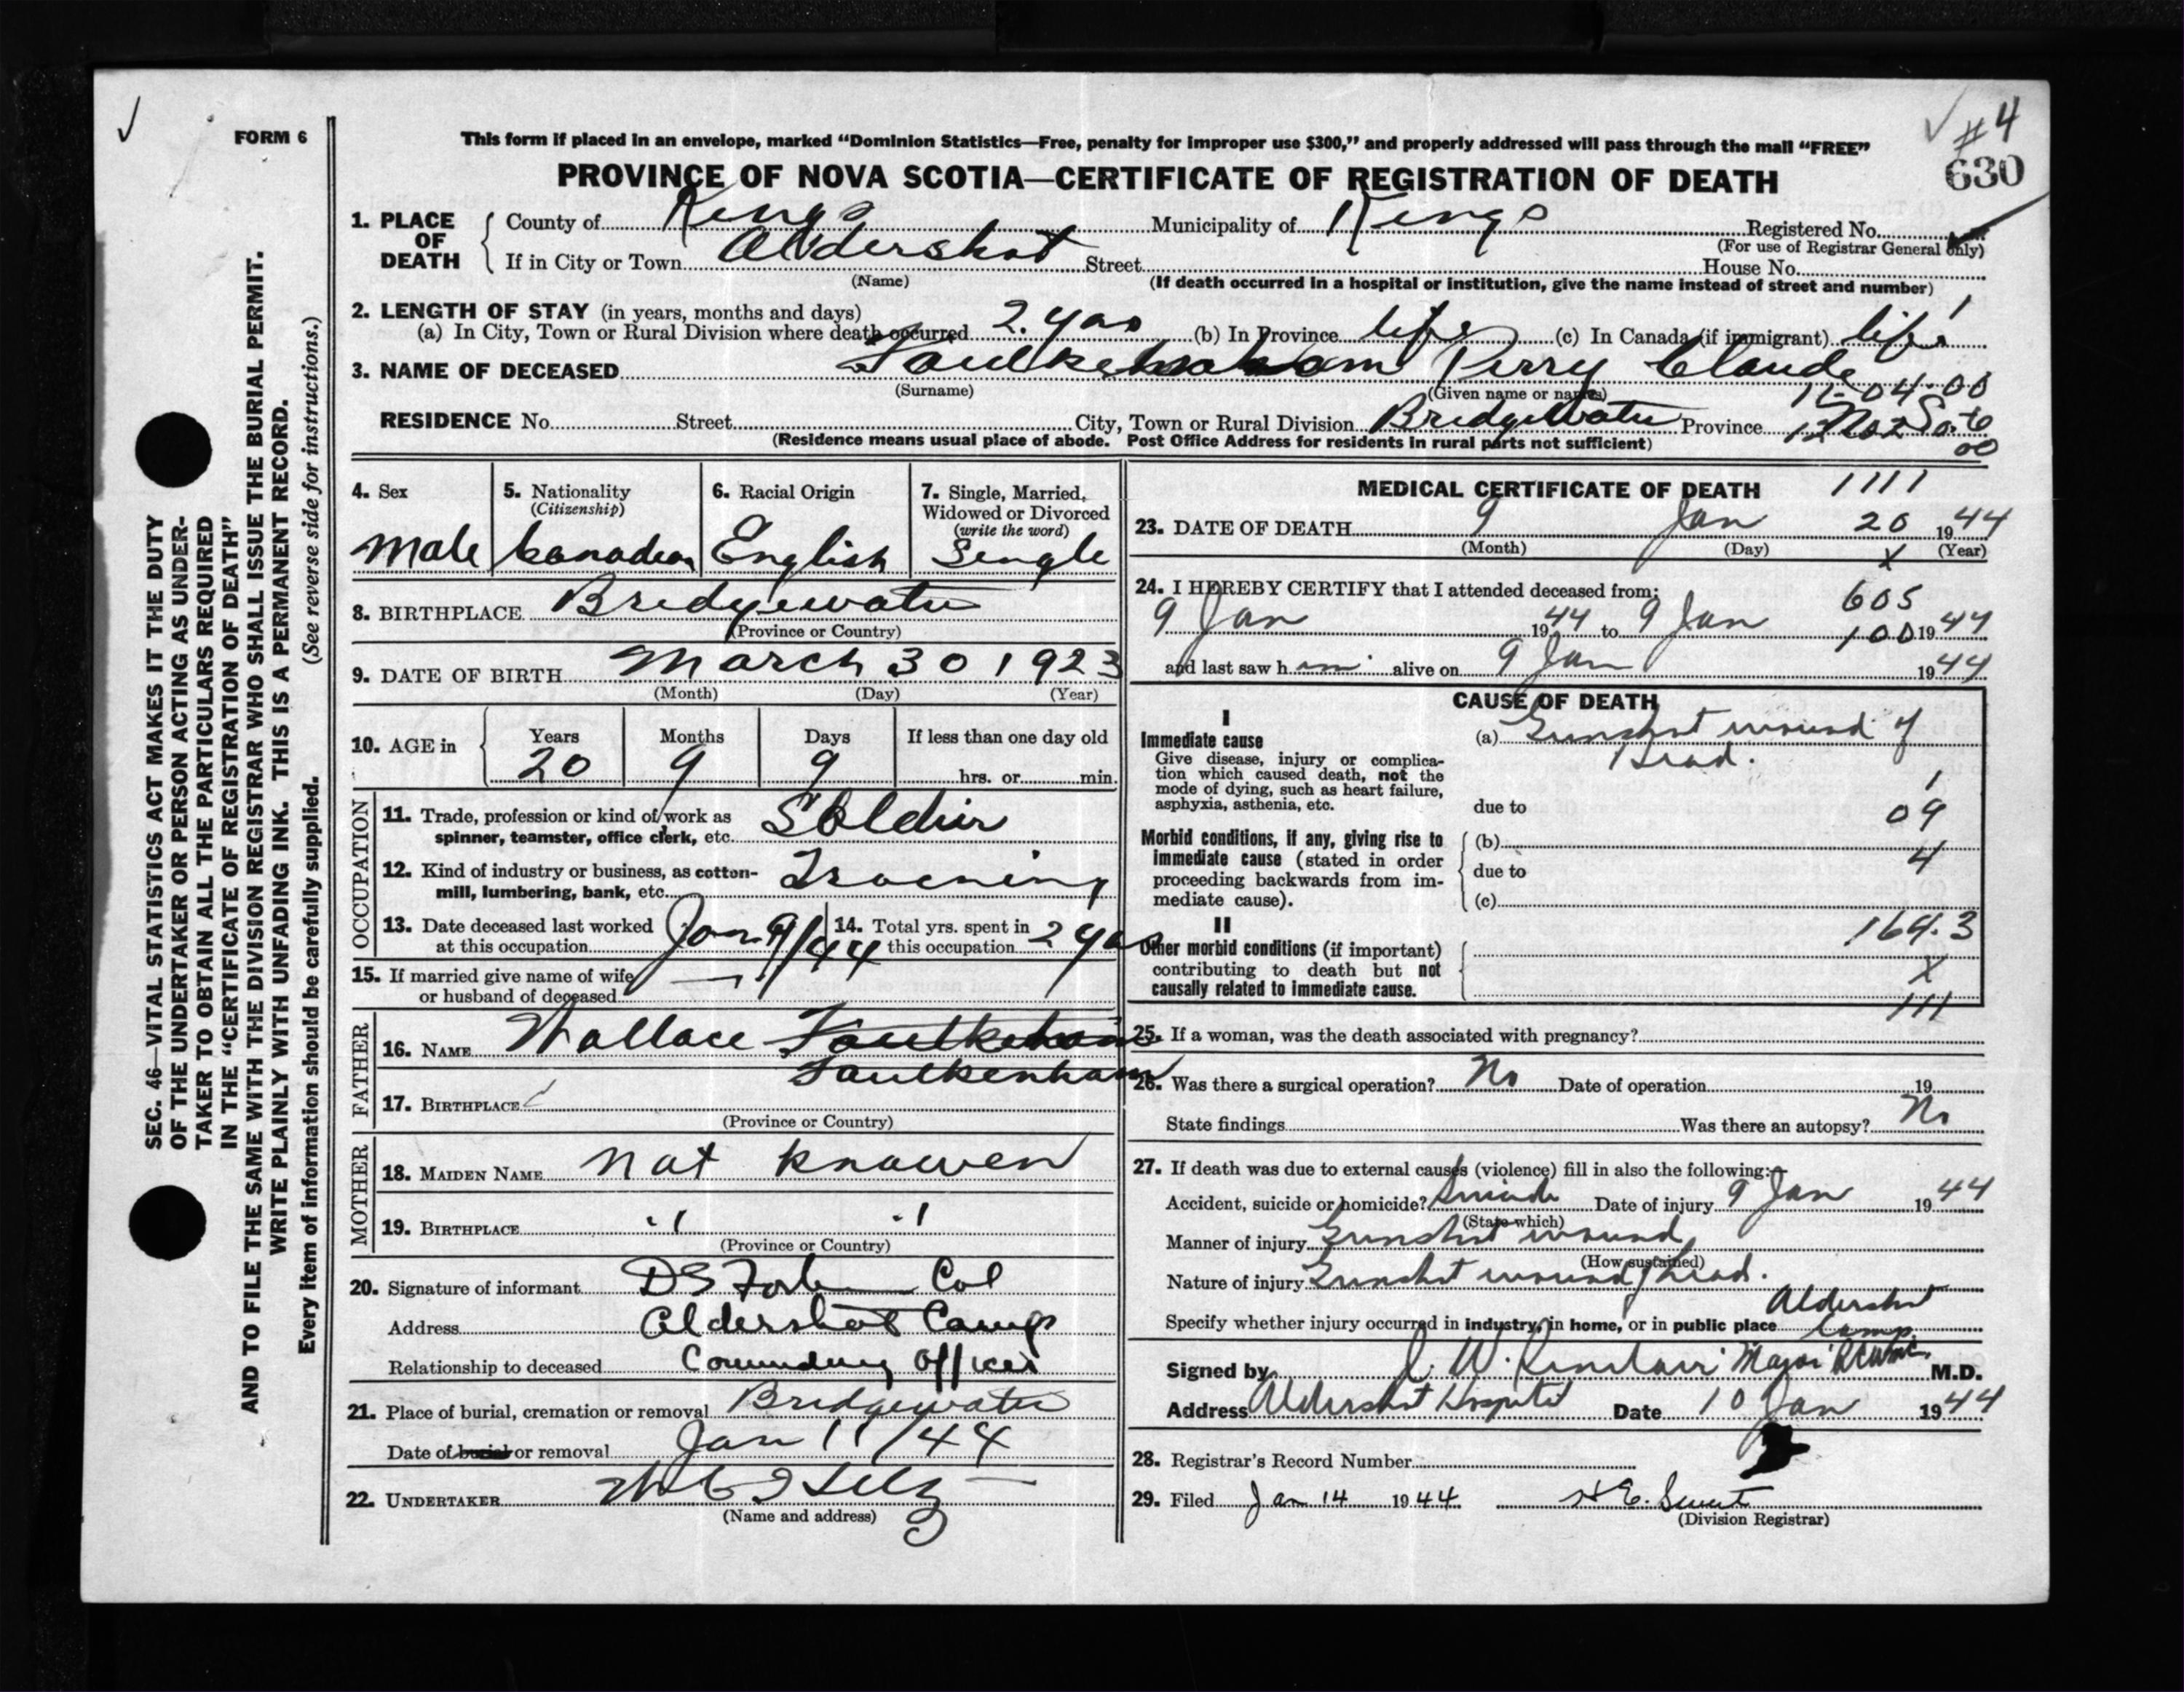 ✓
#4
FORM 6
630
This form if placed in an envelope, marked “Dominion Statistics—Free, penalty for improper use $300,” and properly addressed will pass through the mail “FREE”
PROVINCE OF NOVA SCOTIA—CERTIFICATE OF REGISTRATION OF DEATH
1. PLACE OF DEATH
County of Kings Municipality of Kings Registered No.
(For use of Registrar General only)
If in City or Town Aldershot Street House No.
(Name) (If death occurred in a hospital or institution, give the name instead of street and number)
2. LENGTH OF STAY (in years, months and days)
(a) In City, Town or Rural Division where death occurred 2 yrs (b) In Province life (c) In Canada (if immigrant) life
3. NAME OF DECEASED Perry Claude
(Surname) (Given name or names)
RESIDENCE No. Street City, Town or Rural Division Bridgewater Province
(Residence means usual place of abode. Post Office Address for residents in rural parts not sufficient)
4. Sex
Male
5. Nationality
(Citizenship)
Canadian
6. Racial Origin
English
7. Single, Married, Widowed or Divorced
(write the word)
Single
8. BIRTHPLACE Bridgewater
(Province or Country)
9. DATE OF BIRTH March 30 1923
(Month) (Day) (Year)
10. AGE in
Years Months Days If less than one day old
20 9 9 hrs. or min.
OCCUPATION
11. Trade, profession or kind of work as
spinner, teamster, office clerk, etc. Soldier
12. Kind of industry or business, as cotton-
mill, lumbering, bank, etc. Training
13. Date deceased last worked
at this occupation Jan 9/44
14. Total yrs. spent in
this occupation 2 yrs
15. If married give name of wife
or husband of deceased —
FATHER
16. NAME Wallace
Faulkenham
17. BIRTHPLACE
(Province or Country)
MOTHER
18. MAIDEN NAME not knowen
19. BIRTHPLACE " "
(Province or Country)
20. Signature of informant Col
Address Aldershot Camp
Relationship to deceased Officer
21. Place of burial, cremation or removal Bridgewater
Date of burial or removal Jan 11/44
22. UNDERTAKER
(Name and address)
MEDICAL CERTIFICATE OF DEATH 1111
23. DATE OF DEATH 9 Jan 20 1944
(Month) (Day) (Year)
X
24. I HEREBY CERTIFY that I attended deceased from:
605
9 Jan 1944 to 9 Jan 1944
100
and last saw him alive on 9 Jan 1944
CAUSE OF DEATH
I
Immediate cause
Give disease, injury or complica-
tion which caused death, not the
mode of dying, such as heart failure,
asphyxia, asthenia, etc.
(a) Gunshot wound of
Head.
1
due to 09
Morbid conditions, if any, giving rise to
immediate cause (stated in order
proceeding backwards from im-
mediate cause).
(b)
4
due to
(c)
II
Other morbid conditions (if important)
contributing to death but not
causally related to immediate cause.
164.3
X
111
25. If a woman, was the death associated with pregnancy?
26. Was there a surgical operation? No Date of operation 19
State findings Was there an autopsy? No
27. If death was due to external causes (violence) fill in also the following:
Accident, suicide or homicide? Suicide Date of injury 9 Jan 1944
(State which)
Manner of injury Gunshot wound
(How sustained)
Nature of injury Gunshot wound head.
Specify whether injury occurred in industry, in home, or in public place Aldershot
Camp.
Signed by Major M.D.
Address Aldershot Hospital Date 10 Jan 1944
28. Registrar's Record Number
29. Filed Jan 14 1944
(Division Registrar)
SEC. 46—VITAL STATISTICS ACT MAKES IT THE DUTY
OF THE UNDERTAKER OR PERSON ACTING AS UNDER-
TAKER TO OBTAIN ALL THE PARTICULARS REQUIRED
IN THE “CERTIFICATE OF REGISTRATION OF DEATH”
AND TO FILE THE SAME WITH THE DIVISION REGISTRAR WHO SHALL ISSUE THE BURIAL PERMIT.
WRITE PLAINLY WITH UNFADING INK. THIS IS A PERMANENT RECORD.
Every item of information should be carefully supplied. (See reverse side for instructions.)